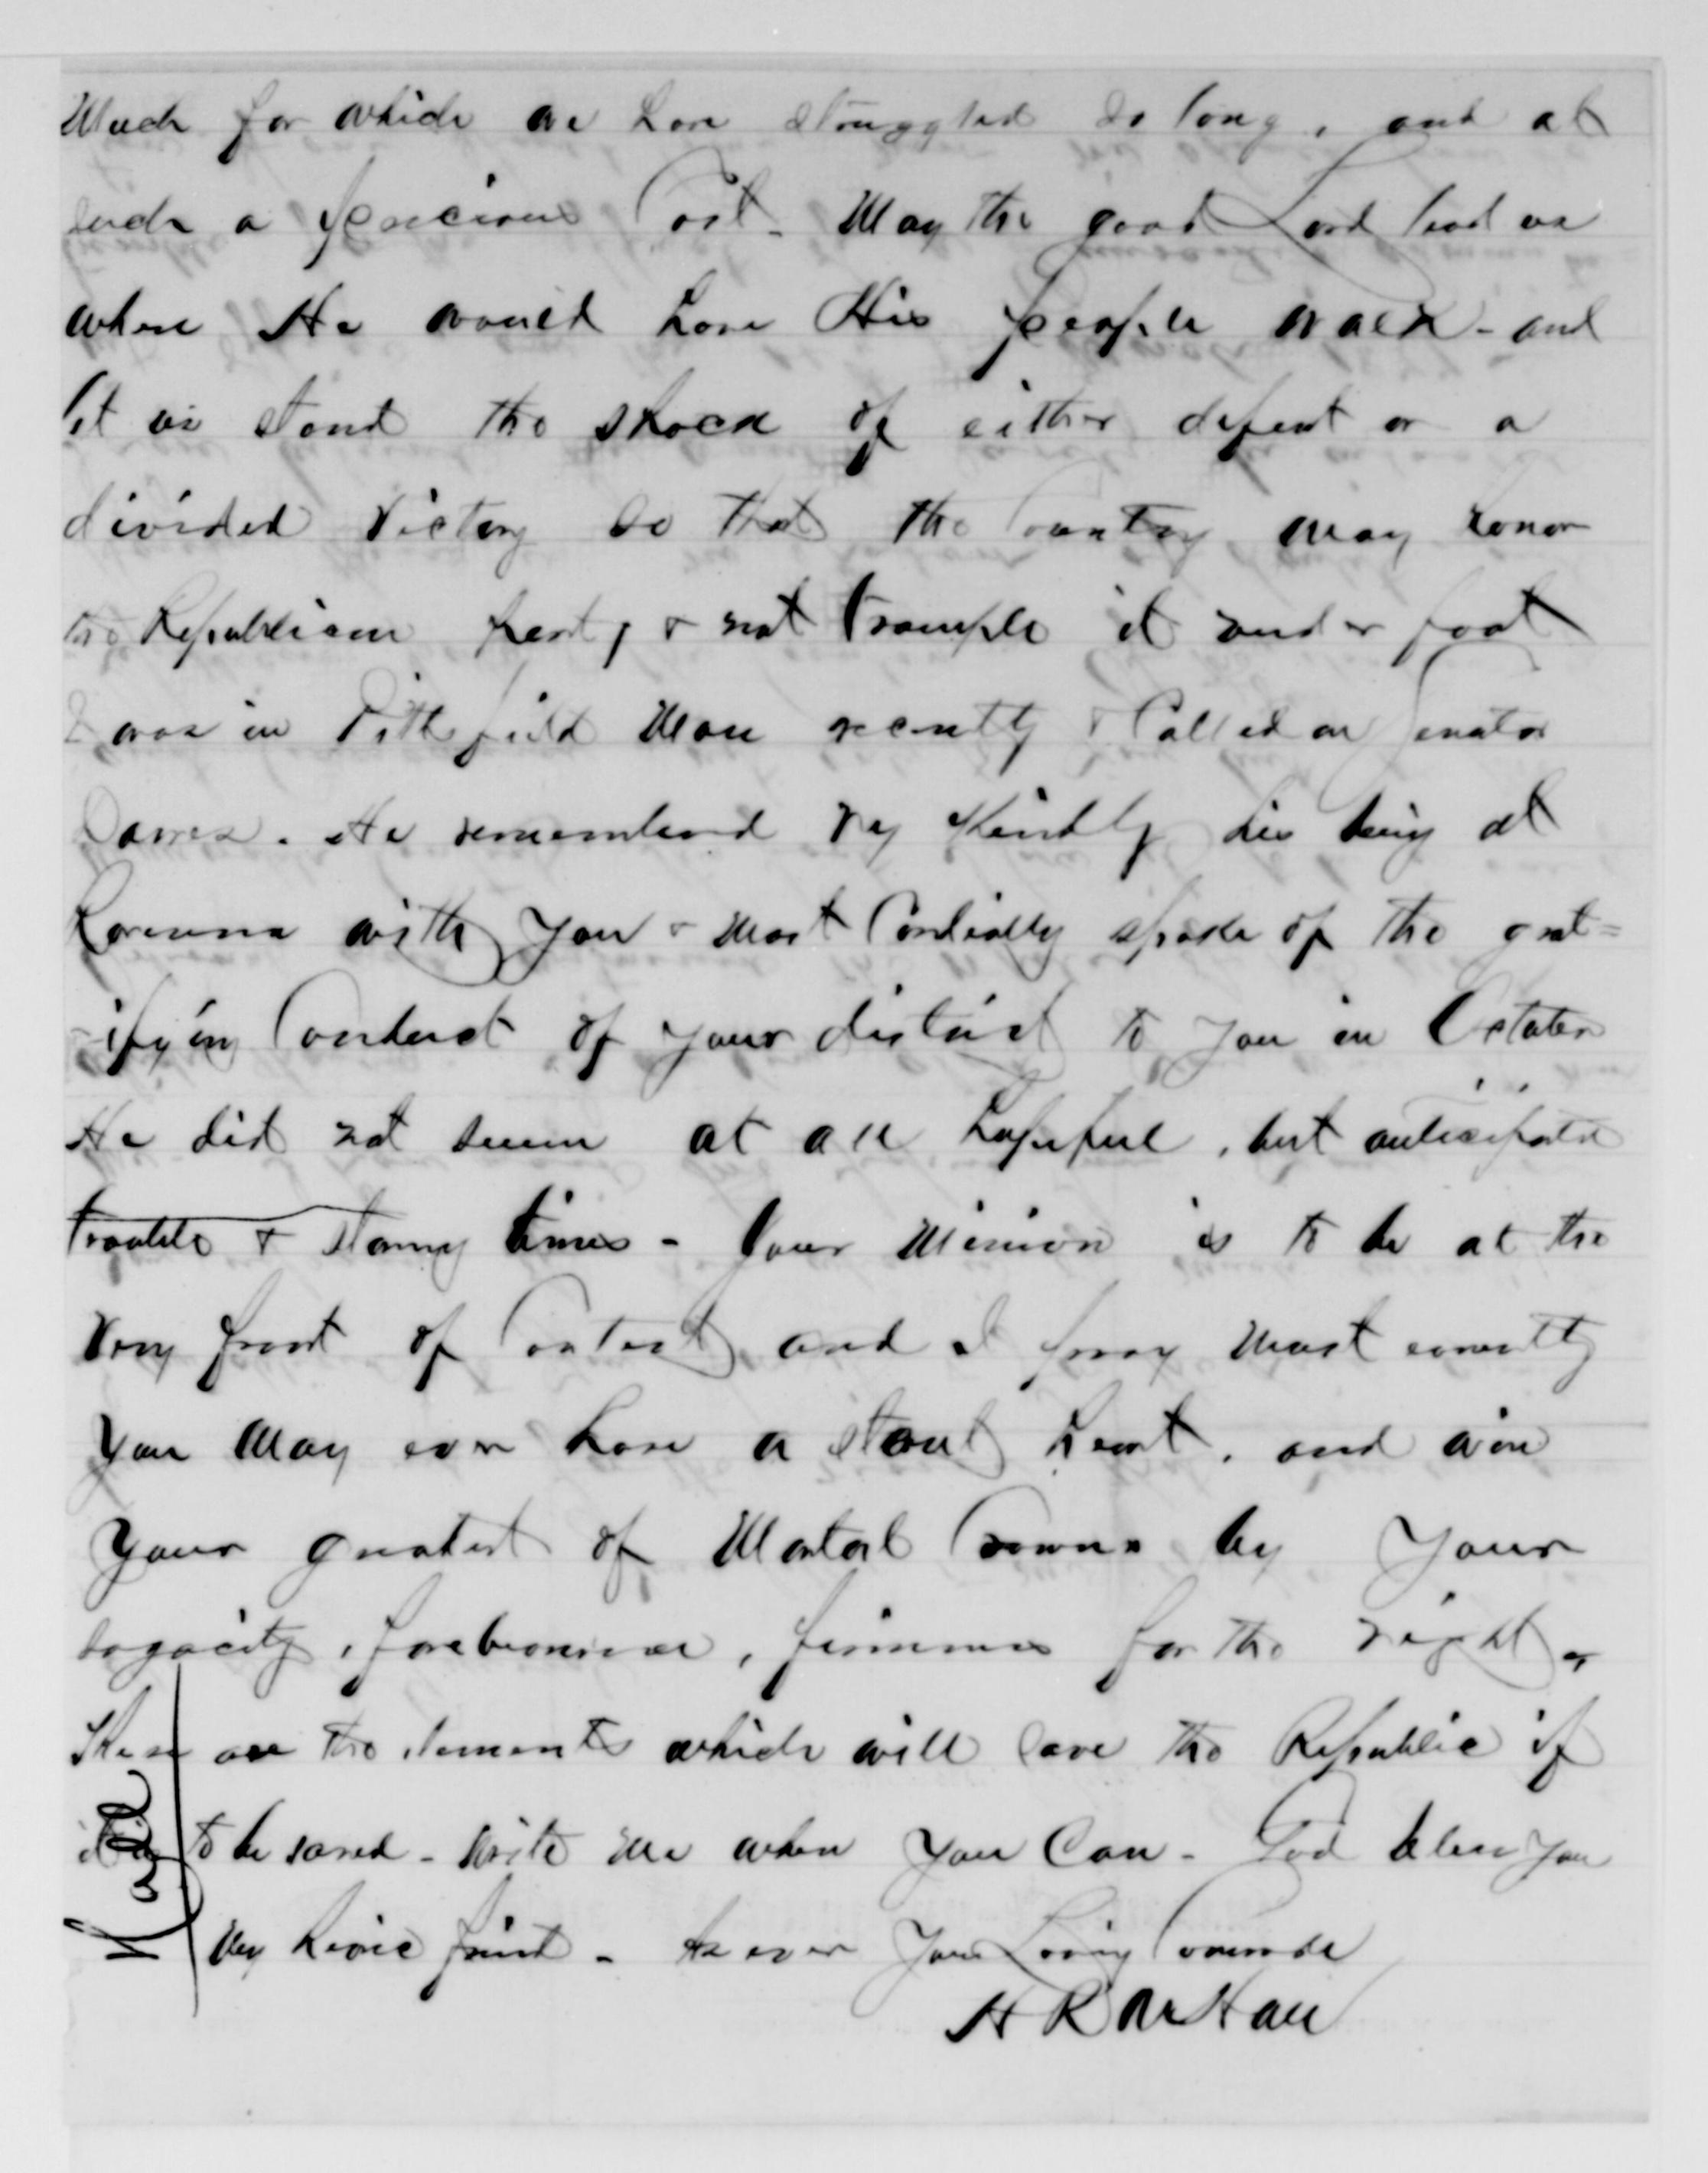 Much for which we have struggled so long, and at
such a precious Cost - May the good Lord lead us
where He would have His people walk - and
let us stand the shock of either defeat or a
divided Victory so that the Country may honor
the Republican party & not trample it under foot
I was in Pittsfield Mass recently & Called on Senator
Dawes. He remembered very Kindly his being at
Ravenna with you & most Cordially spoke of the grat=
-ifying Conduct of your district to you in October
He did not seem at all hopeful, but anticipated
trouble & stormy times - Your Mission is to be at the
Very front of Contest and I pray most earnestly
you May ever have a stout heart, and win
your greatest of Mortal Crowns by your
sagacity, forebearance, firmness for the right,
These are the elements which will save the Republic if
it is to be saved - Write me when you Can - God bless you
My heroic friend - As ever Your Loving Comrade